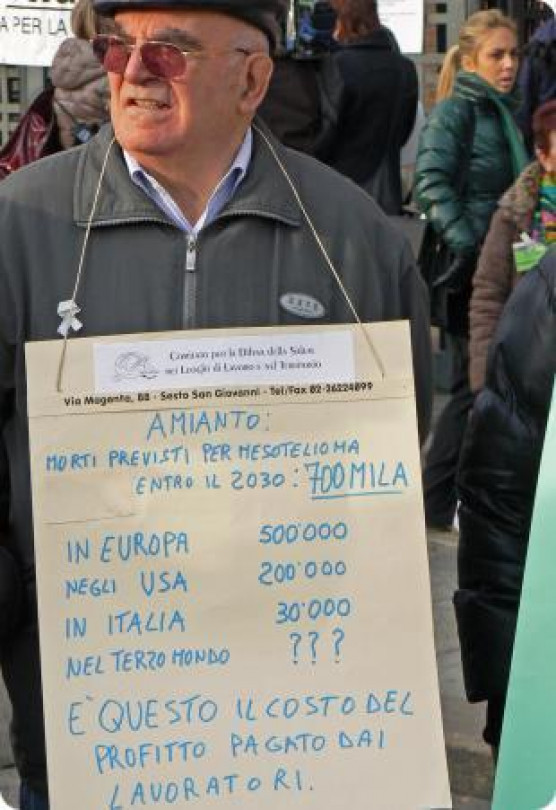 A PER LA
Comitato per la Difesa della Salute
nei Luoghi di Lavoro e nel Territorio
Via Magenta, 88 - Sesto San Giovanni - Tel/Fax 02-26224099
AMIANTO:
MORTI PREVISTI PER MESOTELIOMA
ENTRO IL 2030: 700MILA
IN EUROPA 500'000
NEGLI USA 200'000
IN ITALIA 30'000
NEL TERZO MONDO ? ? ?
E' QUESTO IL COSTO DEL
PROFITTO PAGATO DAI
LAVORATORI.